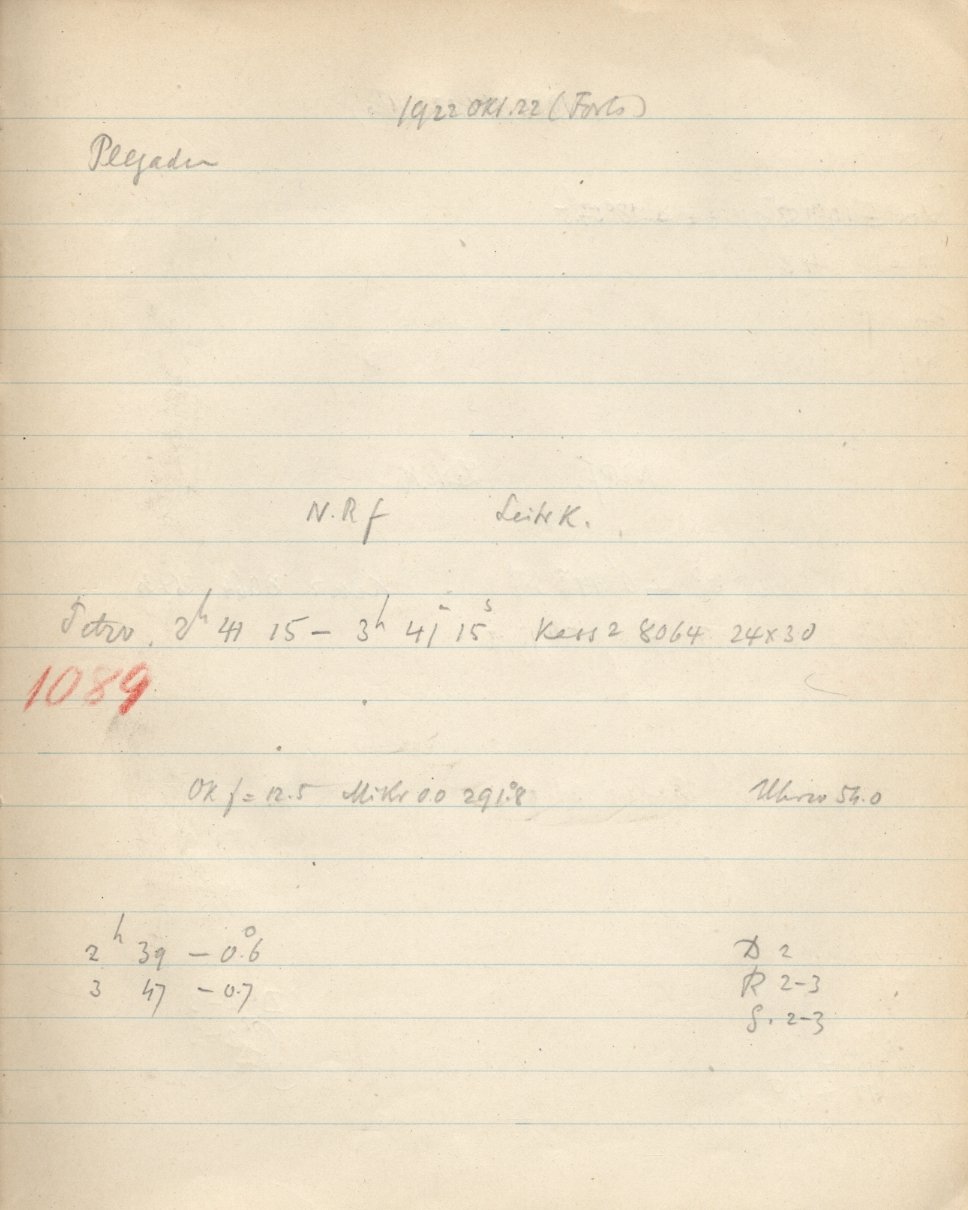 1922 Okt. 22 (Forts)
Plejaden
N.R f Leitr K.
Petzv. 2h 41 15 – 3h 41m 15s Kass 2 8064 24x30
1089
Ok f = 12.5 Mikr 0.0 291.°8 Uhrzo 54.0
2h 39 – 0.°6 D 2
3 47 – 0.7 R 2-3
S. 2-3